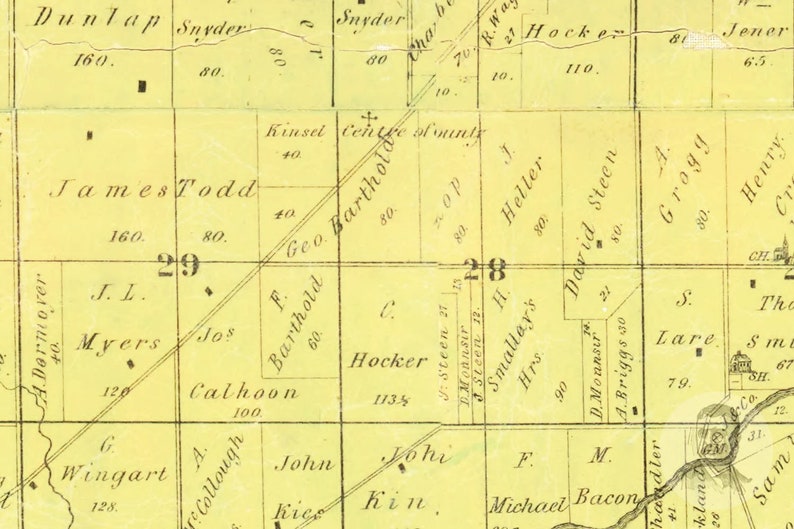 Dunlap
160.
Snyder
80.
80
Snyder
80
70.
10.
R. Wag
27
10.
Hocker
110.
Jener
65.
Kinsel
40.
Centre of County
James Todd
160.
80.
40.
Geo. Barthold
80.
80.
J.
Heller
80.
David Steen
80.
21
A.
Grogg
80.
Henry
CH.
29
28
A. Dermoyer
40.
J. L.
Myers
120
Jos
Calhoun
100.
F.
Barthold
60.
C.
Hocker
113½
J. Steen 27
13
D. Monnsir
J. Steen 12.
H.
Smalley's
Hrs.
90
D. Monnsir
14.
A. Briggs 30
S.
Lare
79.
Tho
Smi
67
SH.
& Co.
12.
31.
GM.
G.
Wingart
128.
A.
McCollough
John
Kies
John
Kin.
F.
Michael
M.
Bacon
41.
Sam